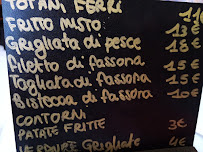 TOTANI FERRI 11€
FRITTO MISTO 13€
Grigliata di pesce 18€
Filetto di fassona 18€
Tagliata di fassona 15€
Bistecca di fassona 10€
CONTORNI
PATATE FRITTE 3€
VERDURE GRIGLIATE 4€